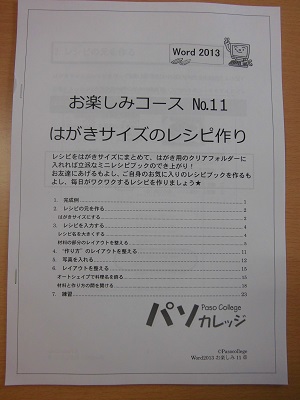 Word 2013
お楽しみコース No.11
はがきサイズのレシピ作り
レシピをはがきサイズにまとめて、はがき用のクリアフォルダーに
入れれば立派なミニレシピブックのでき上がり!
お友達にあげるもよし、ご自身のお気に入りのレシピブックを作るも
よし、毎日がワクワクするレシピを作りましょう★
1. 完成例 1
2. レシピの元を作る 2
はがきサイズにする 2
3. レシピを入力する 4
レシピ名を大きくする 4
材料の部分のレイアウトを整える 5
4. “作り方”のレイアウトを整える 11
5. 写真を入れる 12
6. レイアウトを整える 15
オートシェイプで料理名を飾る 15
材料と作り方の間を開ける 18
7. 練習 23
パソカレッジ
Paso College
©Pasocollege
Word2013 お楽しみ 11 章